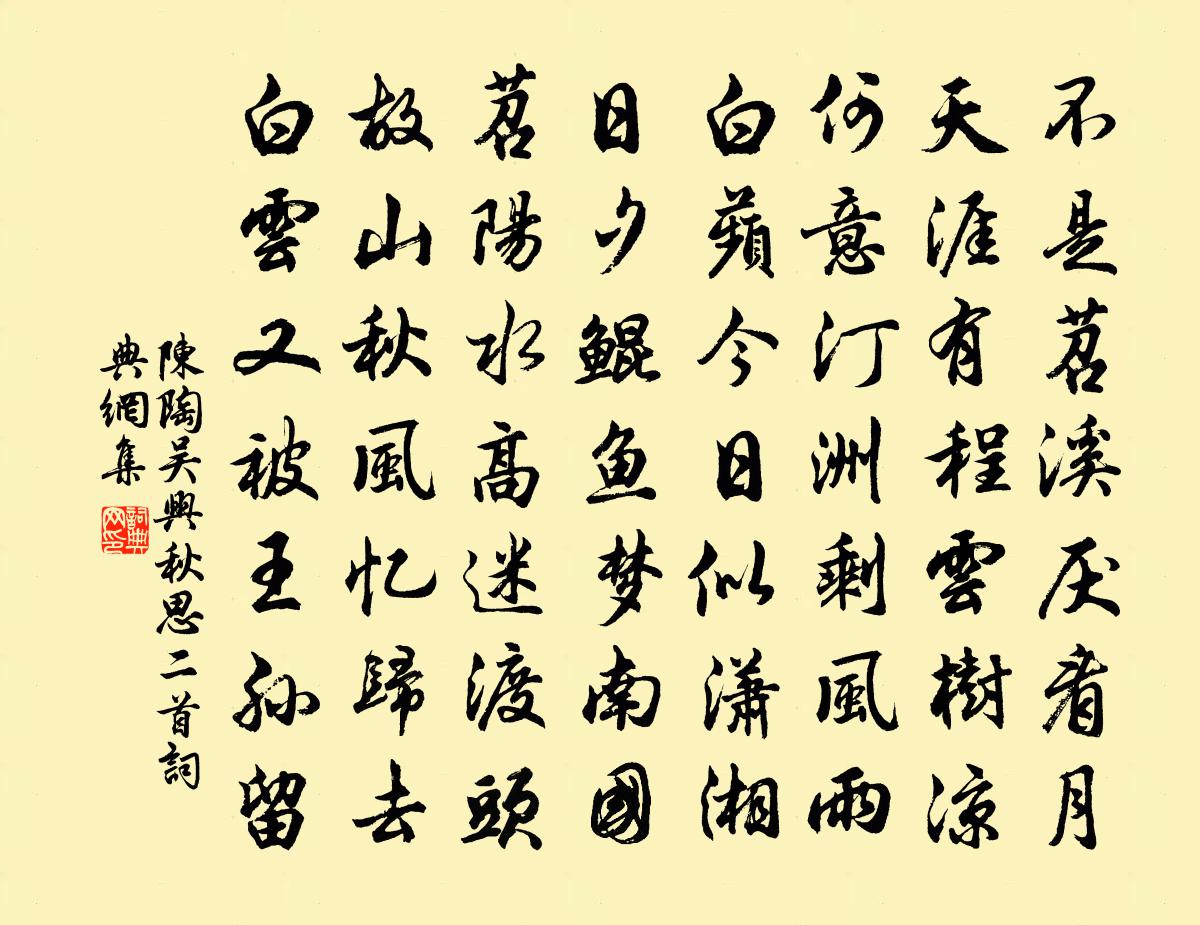 不是苕溪厌看月
天涯有程雲樹凉
何意汀洲剩風雨
白蘋今日似潇湘
日夕鲲鱼梦南國
苕陽水高迷渡頭
故山秋風忆歸去
白雲又被王孙留
陳陶吴興秋思二首詞
典網集
詞典
网印